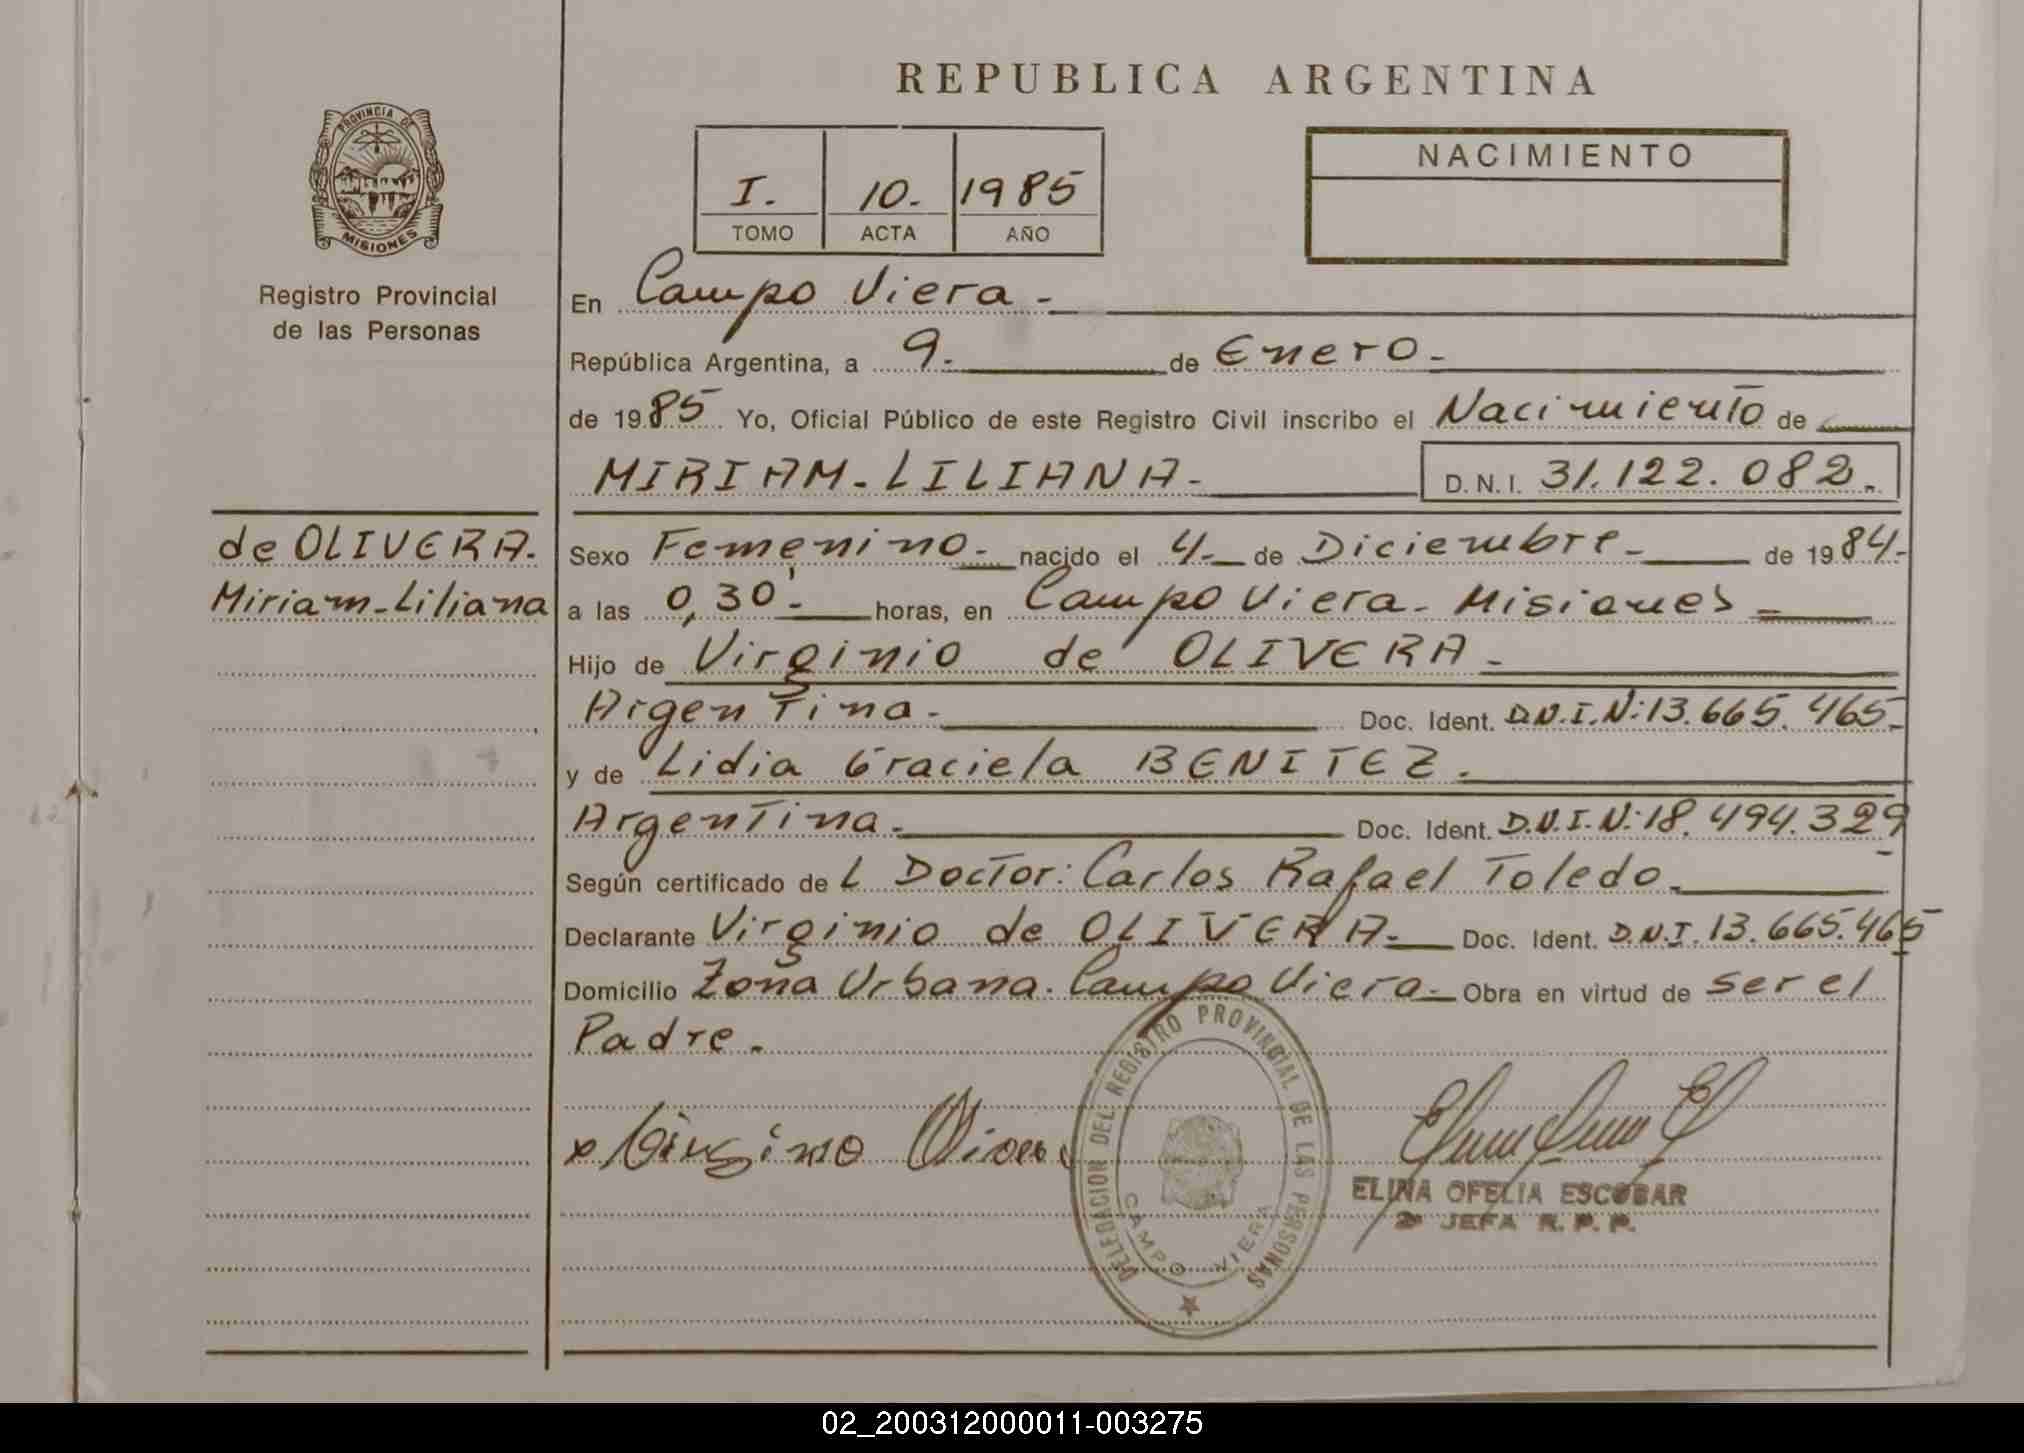 REPUBLICA ARGENTINA
PROVINCIA DE
MISIONES
Registro Provincial
de las Personas
I. 10. 1985
TOMO ACTA AÑO
NACIMIENTO
En Campo Viera.-
República Argentina, a 9.- de Enero.-
de 1985 Yo, Oficial Público de este Registro Civil inscribo el Nacimiento de
MIRIAM-LILIANA.- D.N.I. 31.122.082.
de OLIVERA.
Miriam-Liliana
Sexo Femenino.- nacido el 4.- de Diciembre.- de 1984.-
a las 0,30'.- horas, en Campo Viera.- Misiones.-
Hijo de Virginio de OLIVERA.-
Argentina.- Doc. Ident. D.N.I.N:13.665.465.-
y de Lidia Graciela BENITEZ.
Argentina.- Doc. Ident. D.N.I.N:18.494.329-
Según certificado de L Doctor: Carlos Rafael Toledo.-
Declarante Virginio de OLIVERA.- Doc. Ident. D.N.I. 13.665.465
Domicilio Zona Urbana. Campo Viera.- Obra en virtud de ser el
Padre.-
DELEGACION DEL REGISTRO PROVINCIAL DE LAS PERSONAS
CAMPO VIERA
ELINA OFELIA ESCOBAR
JEFA R. P. P.
02_200312000011-003275